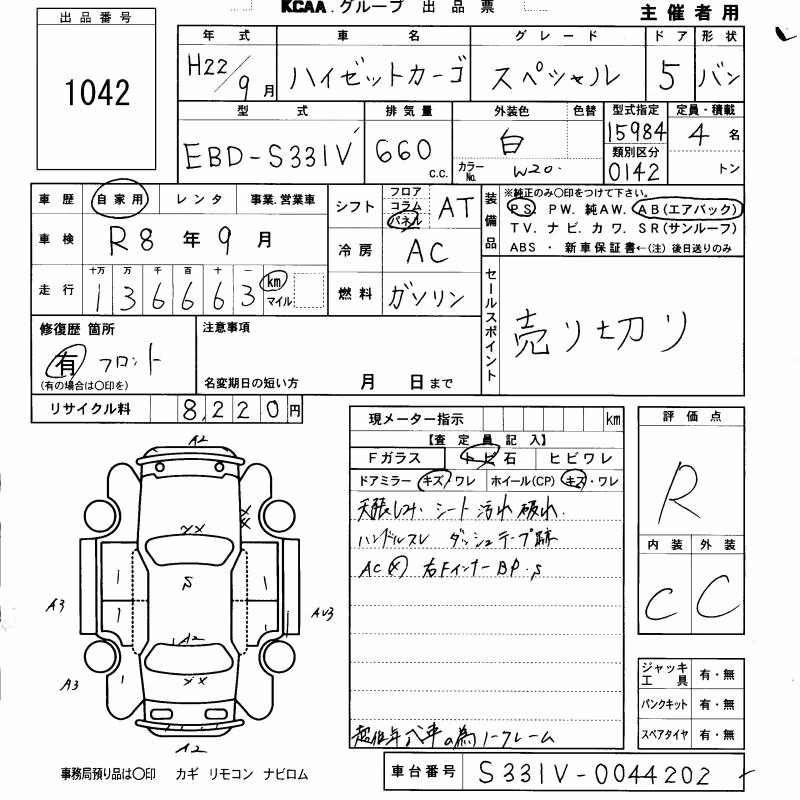 KCAA.グループ 出品票
主催者用
出品番号
1042
年式 車名 グレード ドア 形状
H22/9月 ハイゼットカーゴ スペシャル 5 バン
型式 排気量 外装色 色替 型式指定 定員・積載
EBD-S331V 660 c.c. 白 15984 4名
カラーNo. W20. 類別区分 0142 トン
車歴 自家用 レンタ 事業.営業車
車検 R8年9月
走行 十万 万 千 百 十 一
136663 km マイル
シフト フロア コラム パネル AT
冷房 AC
燃料 ガソリン
装備品 ※純正のみ〇印をつけて下さい。
PS. PW. 純AW. AB(エアバック)
TV. ナビ. カワ. SR(サンルーフ)
ABS ・ 新車保証書←(注) 後日送りのみ
セールスポイント
売り切り
修復歴 箇所
有 フロント
(有の場合は〇印を)
注意事項
名変期日の短い方 月 日まで
リサイクル料 8,220円
現メーター指示 km
【査定員記入】
Fガラス トビ石 ヒビワレ
ドアミラー キズ/ワレ ホイール(CP) キズ・ワレ
天張しみ. シート 汚れ 破れ.
ハンドルスレ ダッシュテープ跡
AC 右FインナーBP.S
ノークレーム
評価点
R
内装 外装
C C
ジャッキ工具 有・無
パンクキット 有・無
スペアタイヤ 有・無
A2
XX
S
A3
AU3
A2
XX
A3
A2
事務局預り品は〇印 カギ リモコン ナビロム
車台番号 S331V-0044202